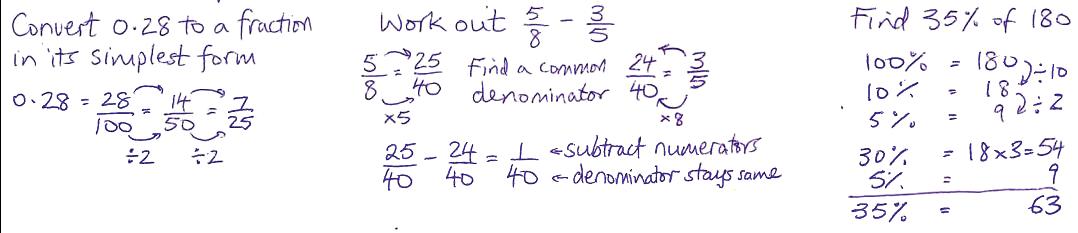 Convert 0.28 to a fraction
in its simplest form
0.28 = 28/100 = 14/50 = 7/25
÷2 ÷2
Work out 5/8 - 3/5
5/8 = 25/40 Find a common denominator 24/40 = 3/5
×5 ×8
25/40 - 24/40 = 1/40 ←subtract numerators
←denominator stays same
Find 35% of 180
100% = 180 ÷10
10% = 18 ÷2
5% = 9
30% = 18×3=54
5% = 9
35% = 63